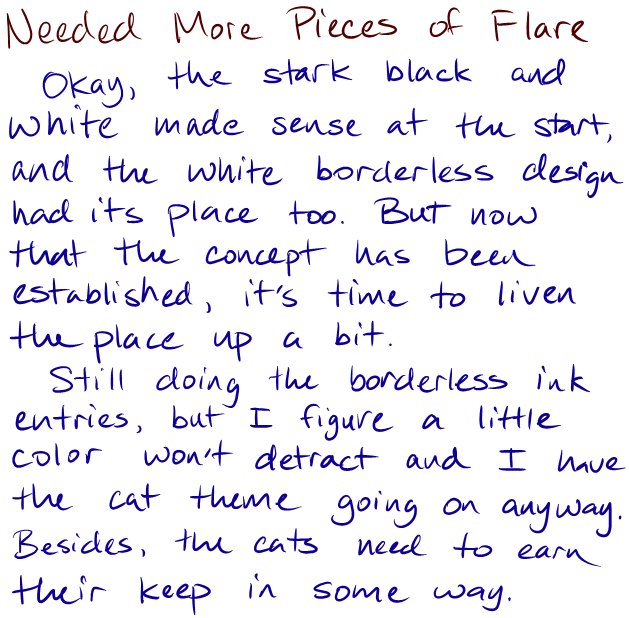 Needed More Pieces of Flare
Okay, the stark black and
white made sense at the start,
and the white borderless design
had its place too. But now
that the concept has been
established, it's time to liven
the place up a bit.
Still doing the borderless ink
entries, but I figure a little
color won't detract and I have
the cat theme going on anyway.
Besides, the cats need to earn
their keep in some way.